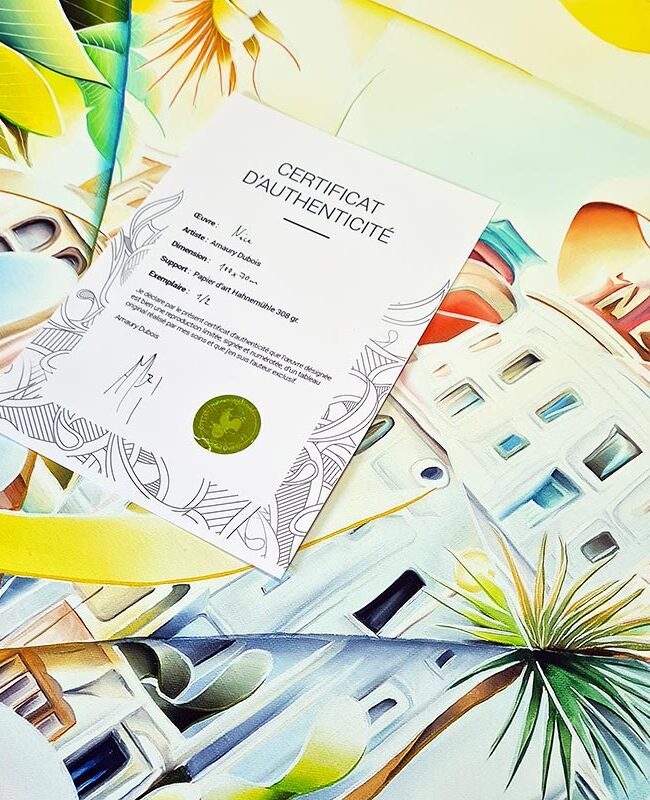 CERTIFICAT
D'AUTHENTICITÉ
Œuvre : Nice
Artiste : Amaury Dubois
Dimension : 100 x 70 cm
Support : Papier d'art Hahnemühle 308 gr.
Exemplaire : 1/2
Je déclare par le présent certificat d'authenticité que l'œuvre désignée
est bien une reproduction limitée, signée et numérotée, d'un tableau
original réalisé par mes soins et que j'en suis l'auteur exclusif.
Amaury Dubois